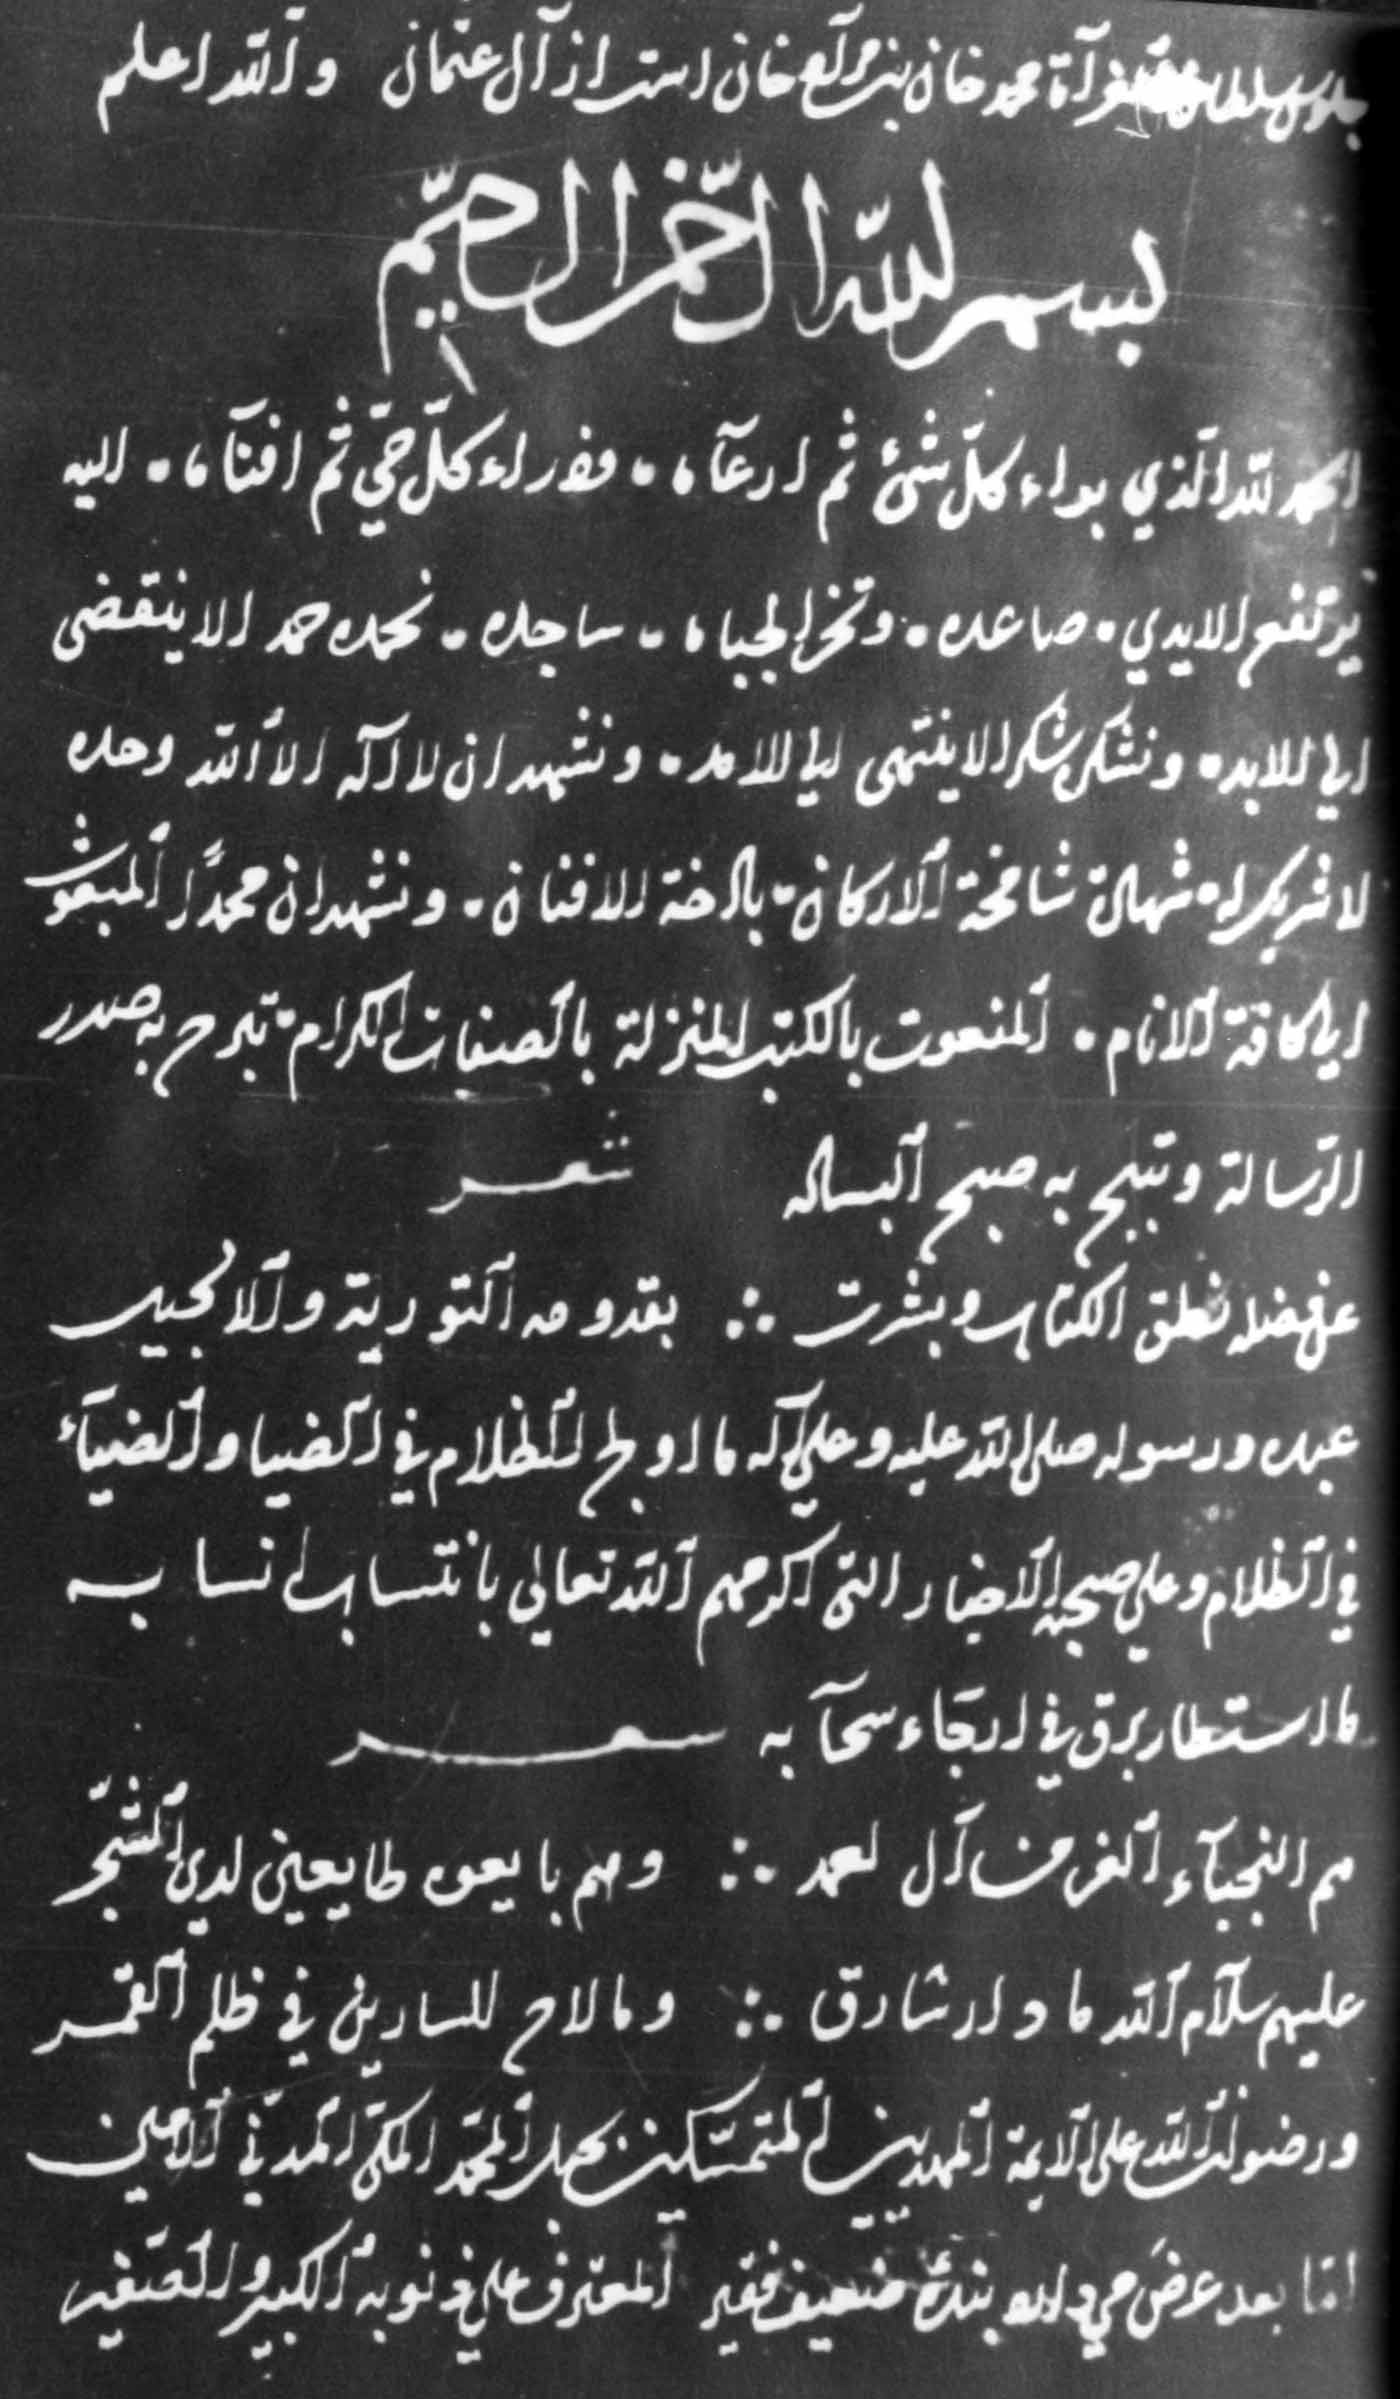 جلوس سلطان محمد خان بن مراد خان است از آل عثمان والله اعلم
بسم الله الرحمن الرحيم
الحمد لله الذي بداء كل شئ ثم ارعاه، وذراء كل حي ثم افناه، اليه
يرتفع الايدي صاعده وتخر الجباه ساجده نحمده حمدا لا ينقضى
الي الابد ونشكره شكرا لا ينتهى الي الامد ونشهد ان لا اله الا الله وحده
لا شريك له شهادة شامخة الاركان باذخة الافنان ونشهد ان محمدًا المبعوث
الي كافة الانام المنعوت بالكتب المنزلة بالصفات الكرام به صدر
الرسالة به صبح البساله شعر
عن فضله نطق الكتاب وبشرت ∴ بقدومه التورية والانجيل
عبده ورسوله صلى الله عليه وعلى آله ما اولج الظلام في الضيا والضيآء
في الظلام وعلي صحبه الاخيار التى اكرمهم الله تعالي بانتساب انسابه
ما استطار برق في ارجاء سحآبه شعر
هم النجبآء الغر من آل ∴ وهم بايعوه طايعين لدي الشجر
عليهم سلام الله ما دار شارق ∴ وما لاح للسارين في ظلم القمر
ورضوان الله على الايمة المهديين المتمسكين بحبل المكي المدني الامين
امّا بعد عرض مي دارد بندۀ ضعيف فقير المعترف علي ذنوبه الكبير والصغير